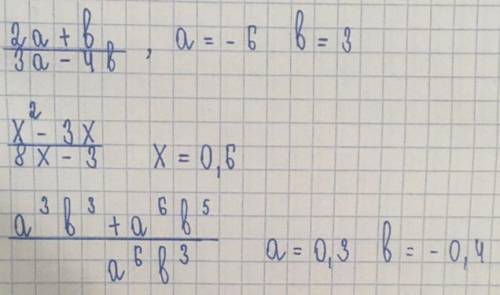 (2a + b)/(3a - 4b), a = -6 b = 3
(x² - 3x)/(8x - 3) x = 0,6
(a³b³ + a⁶b⁵)/(a⁶b³) a = 0,3 b = -0,4